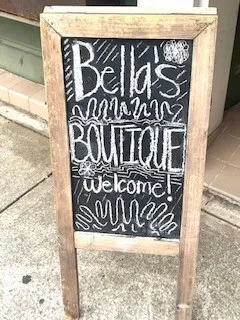 Bella's
BOUTIQUE
welcome!